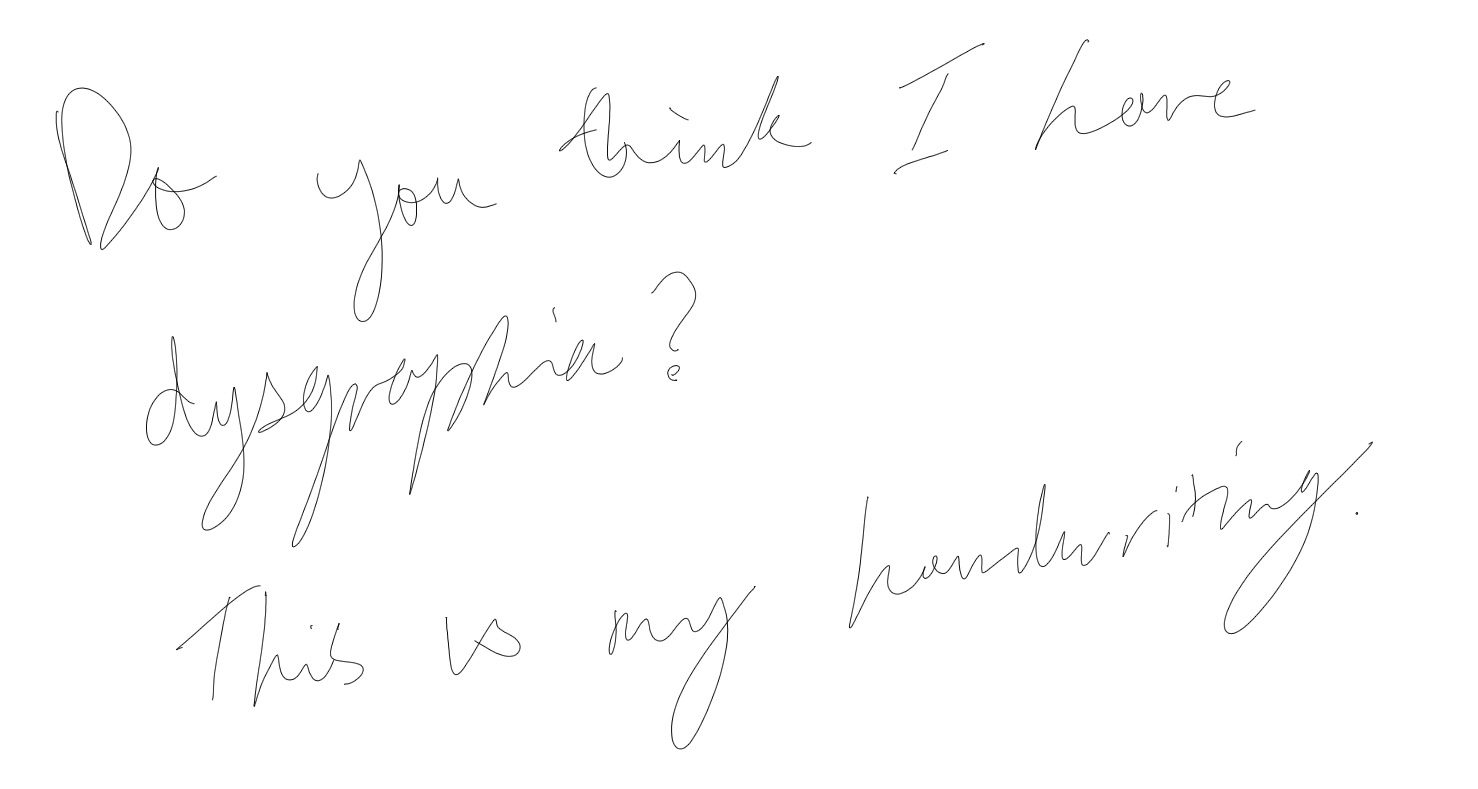 Do you think I have
dysgraphia?
This is my handwriting.